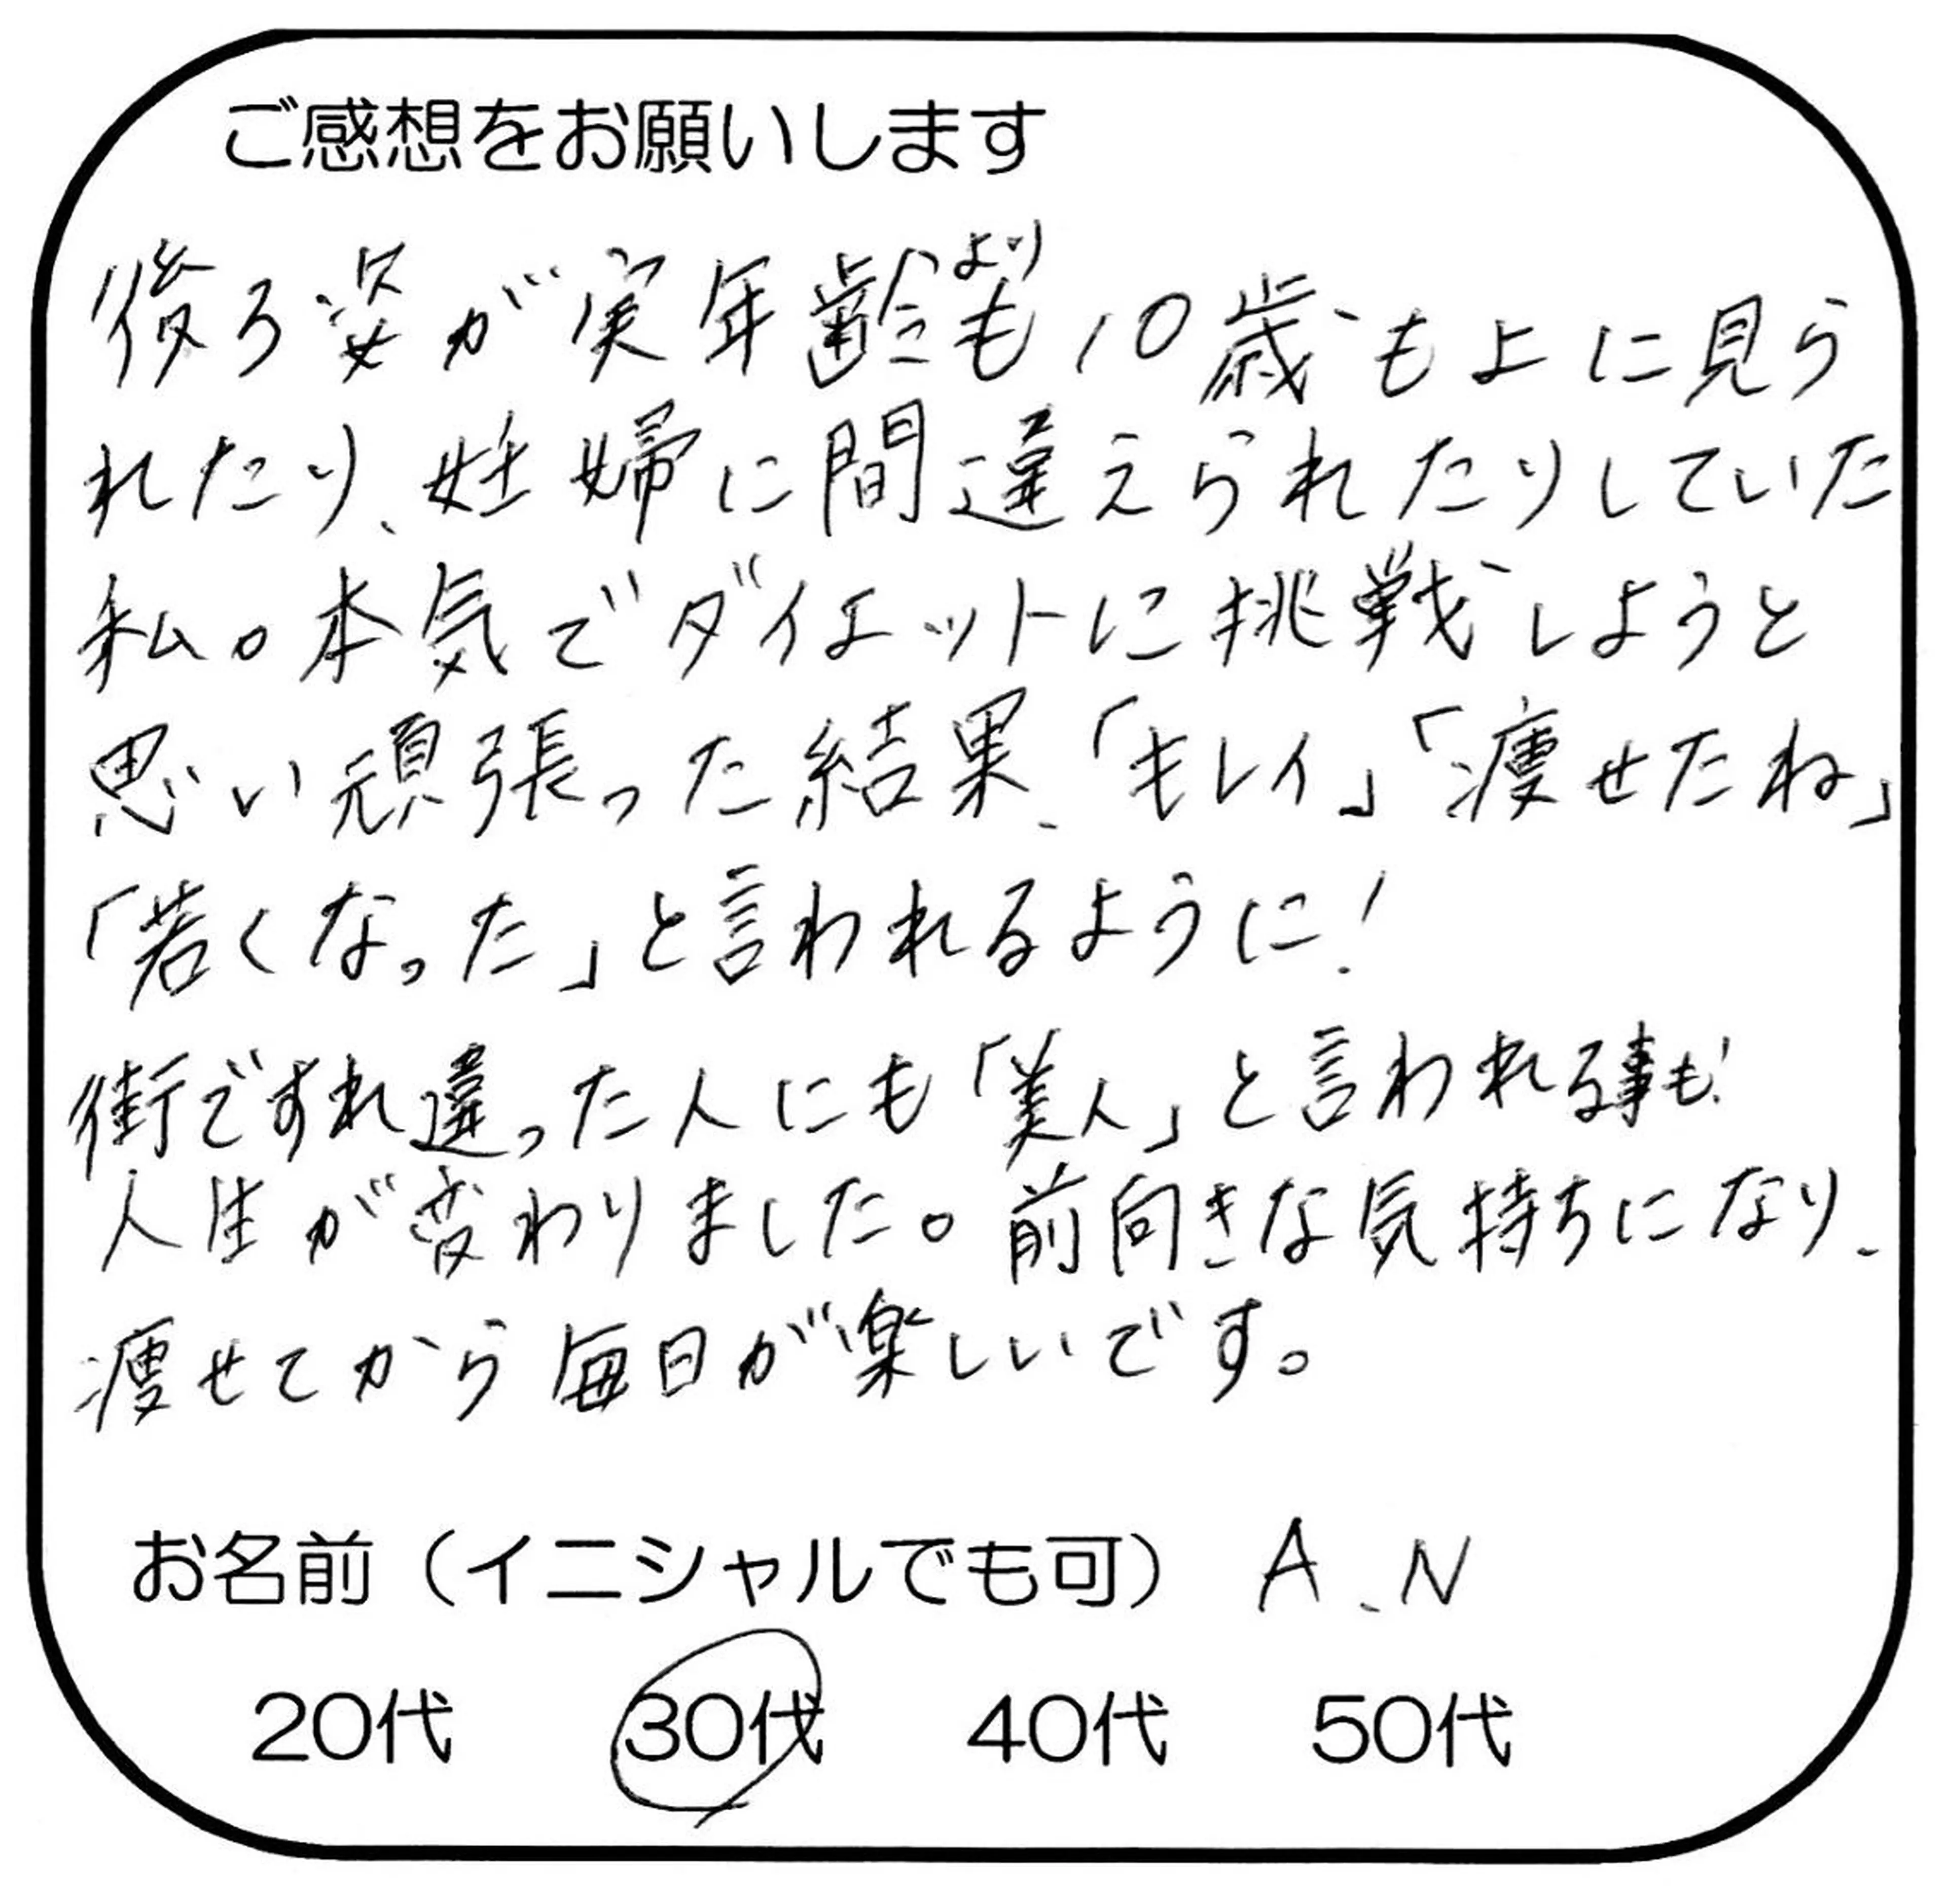 ご感想をお願いします
後ろ姿が実年齢よりも10歳も上に見ら
れたり、妊婦に間違えられたりしていた
私。本気でダイエットに挑戦しようと
思い頑張った結果、「キレイ」「痩せたね」
「若くなった」と言われるように!
街ですれ違った人にも「美人」と言われる事も!
人生が変わりました。前向きな気持ちになり、
痩せてから毎日が楽しいです。
お名前(イニシャルでも可) A.N
20代 30代 40代 50代